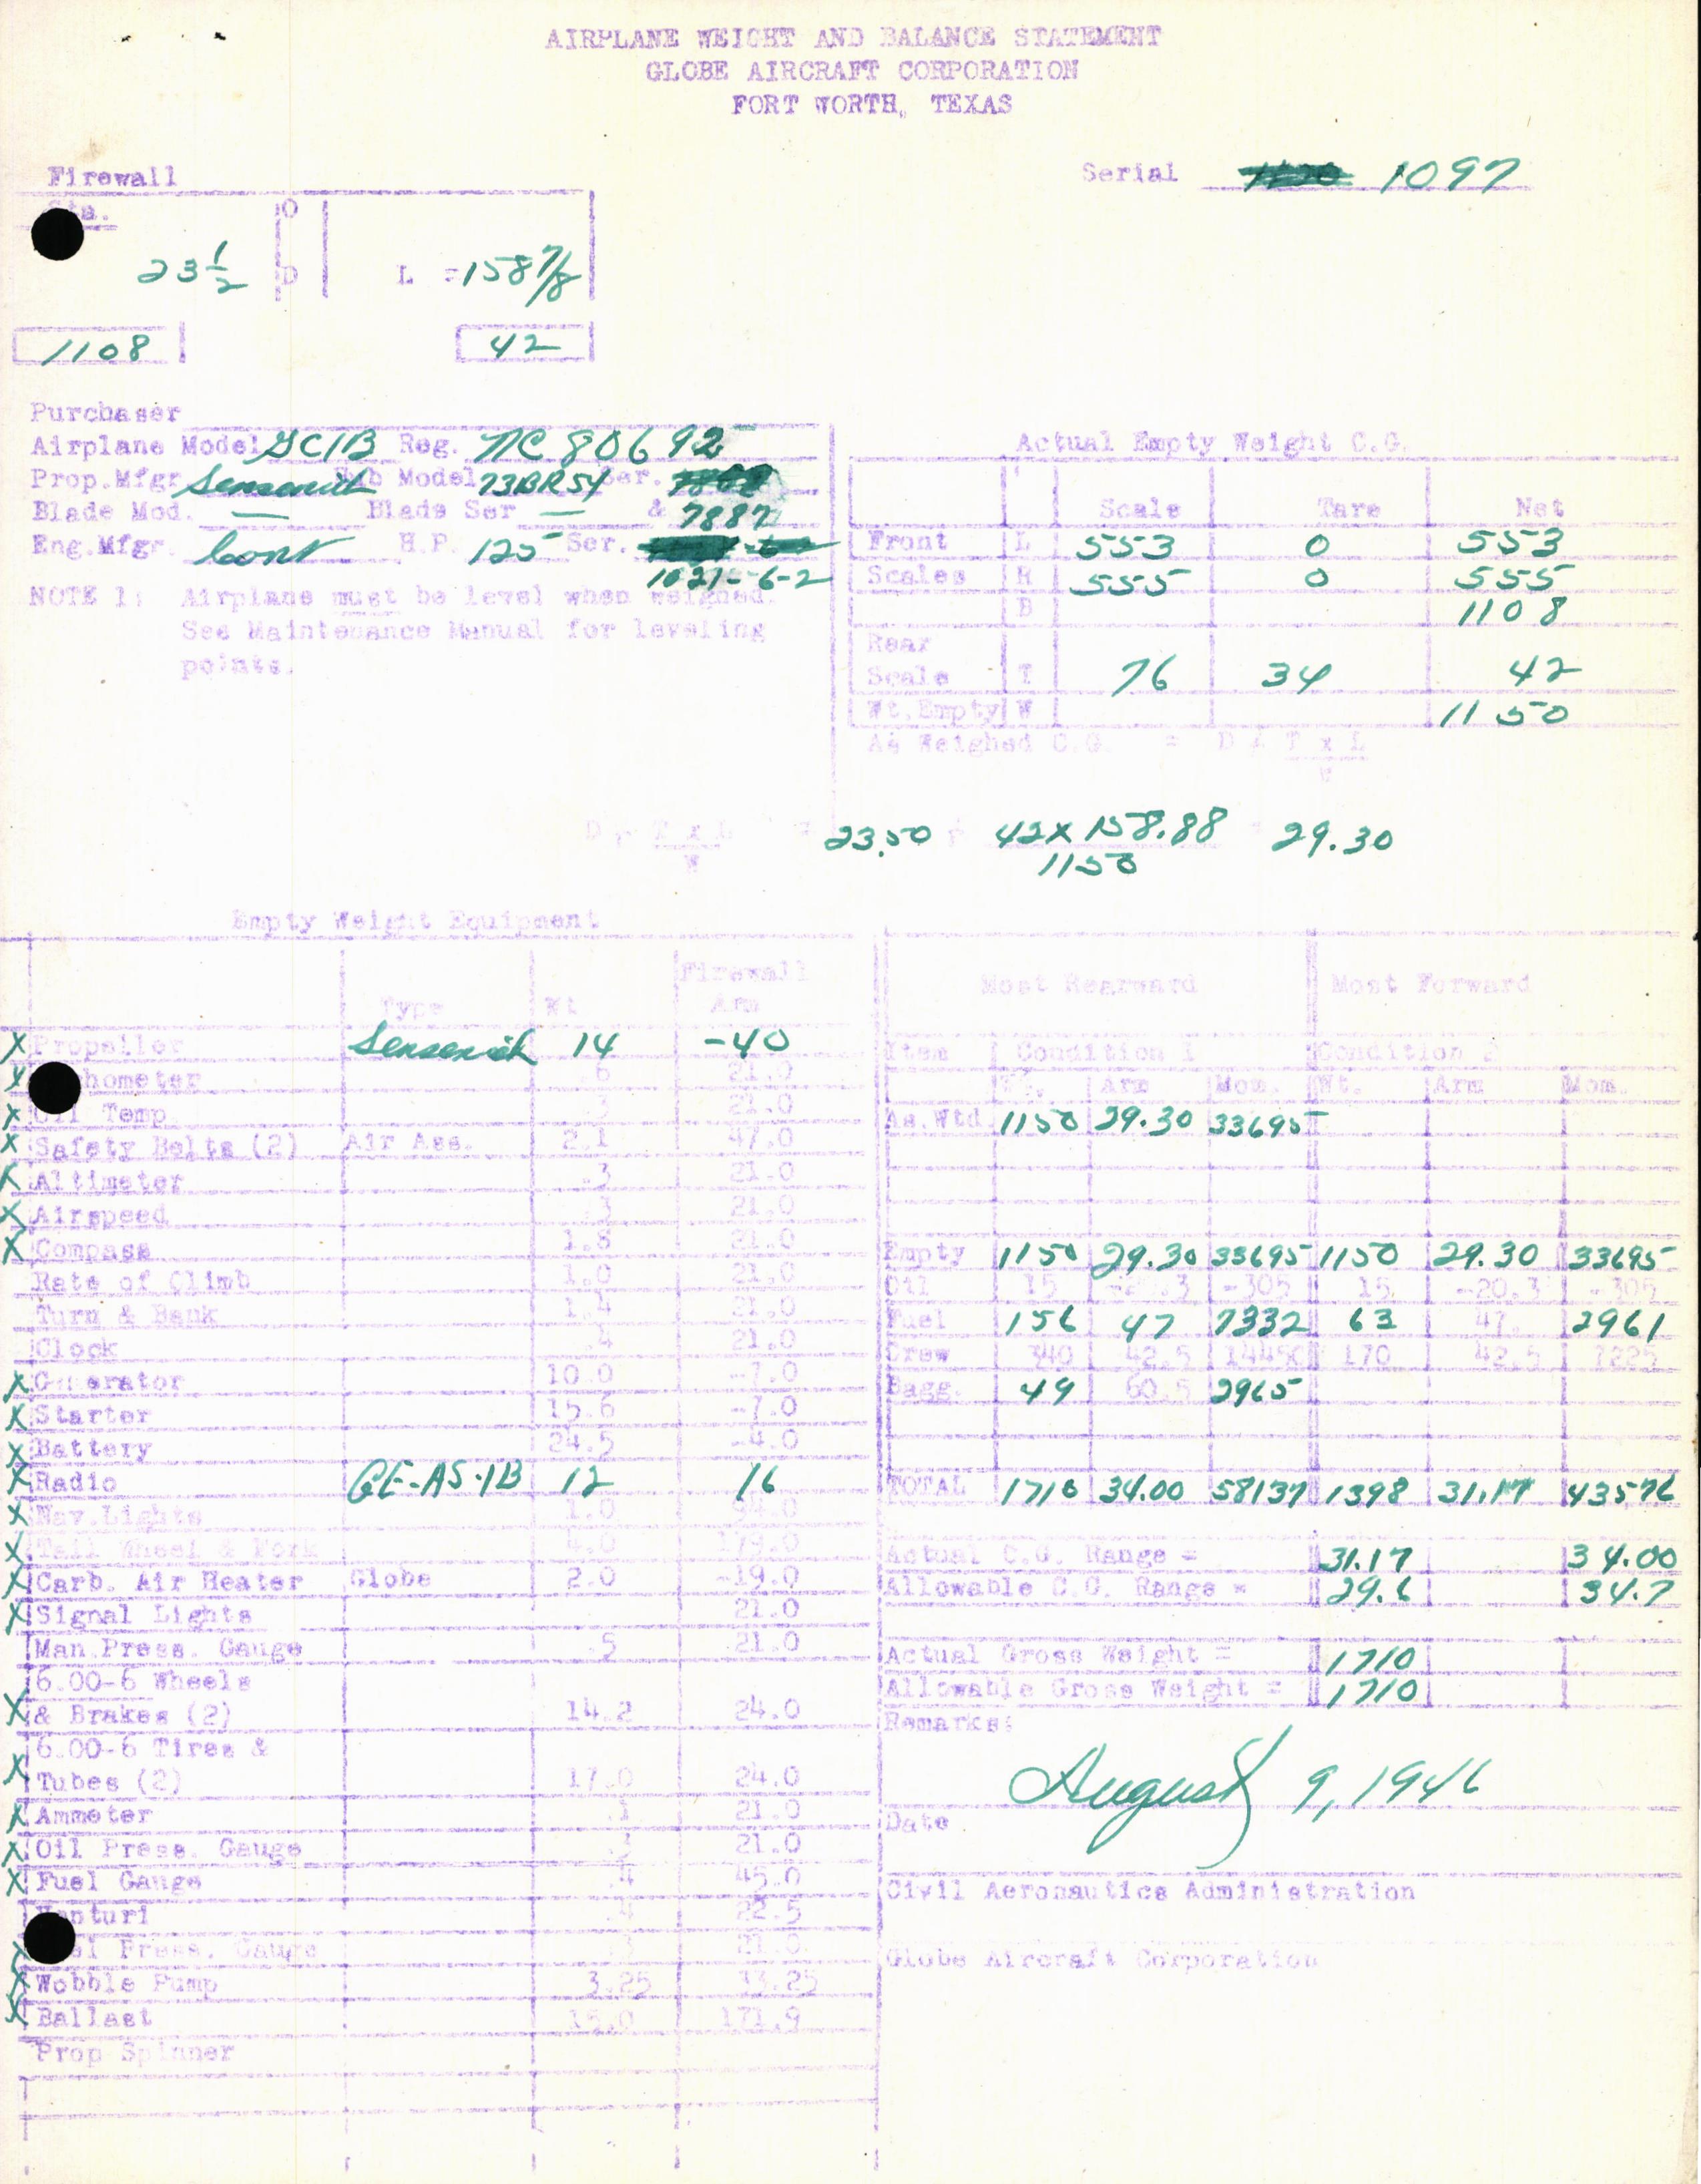 AIRPLANE WEIGHT AND BALANCE STATEMENT
GLOBE AIRCRAFT CORPORATION
FORT WORTH, TEXAS
Serial 1097
Firewall
Sta. O
23 1/2 D L = 158 7/8
1108 42
Purchaser
Airplane Model GC1B Reg. NC 80692
Prop.Mfgr Sensenich Hub Model 73BR54 Ser.
Blade Mod. — Blade Ser — & 7887
Eng.Mfgr. Cont H.P. 125 Ser.
1021-6-2
NOTE 1: Airplane must be level when weighed.
See Maintenance Manual for leveling
points.
Actual Empty Weight C.G.
Scale Tare Net
Front L 553 0 553
Scales R 555 0 555
B 1108
Rear
Scale T 76 34 42
Wt.Empty W 1150
As Weighed C.G. = D + T x L
W
D + T x L = 23.50 + 42 x 158.88 = 29.30
W 1150
Empty Weight Equipment
Type Wt Firewall Arm
X Propeller Sensenich 14 -40
X Tachometer .6 21.0
X Oil Temp .3 21.0
X Safety Belts (2) Air Ass. 2.1 47.0
X Altimeter .3 21.0
X Airspeed .3 21.0
X Compass 1.8 21.0
Rate of Climb 1.0 21.0
Turn & Bank 1.4 21.0
Clock .4 21.0
X Generator 10.0 -7.0
X Starter 15.6 -7.0
X Battery 24.5 -4.0
X Radio GE-AS-1B 12 16
X Nav.Lights 1.0
X Tail Wheel & Fork 4.0 179.0
X Carb. Air Heater Globe 2.0 -19.0
X Signal Lights 21.0
Man.Press. Gauge .5 21.0
6.00-6 Wheels
X & Brakes (2) 14.2 24.0
6.00-6 Tires &
X Tubes (2) 17.0 24.0
X Ammeter .1 21.0
X Oil Press. Gauge .3 21.0
X Fuel Gauge .4 45.0
Venturi .4 22.5
X Fuel Press. Gauge .3 21.0
X Wobble Pump 3.25 33.25
X Ballast 15.0 171.9
Prop Spinner
Most Rearward Most Forward
Item Condition I Condition 2
Wt. Arm Mom. Wt. Arm Mom.
As.Wtd 1150 29.30 33695
Empty 1150 29.30 33695 1150 29.30 33695
Oil 15 -20.3 -305 15 -20.3 -305
Fuel 156 47 7332 63 47. 2961
Crew 340 42.5 14450 170 42.5 7225
Bagg. 49 60.5 2965
TOTAL 1710 34.00 58137 1398 31.17 43576
Actual C.G. Range = 31.17 34.00
Allowable C.G. Range = 29.6 34.7
Actual Gross Weight = 1710
Allowable Gross Weight = 1710
Remarks:
August 9, 1946
Date
Civil Aeronautics Administration
Globe Aircraft Corporation